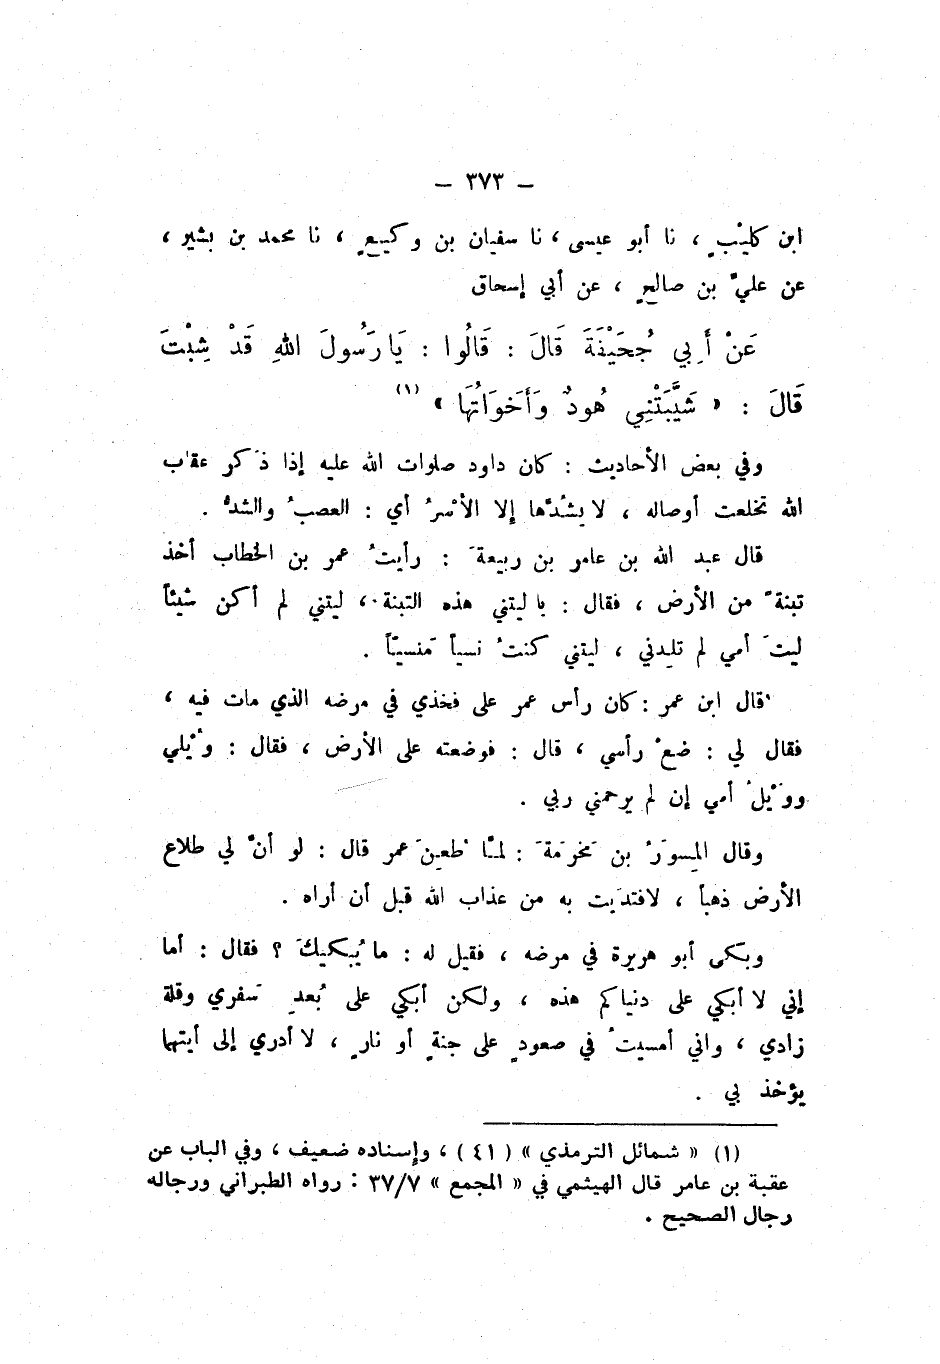 – ٣٧٣ –
ابن كليْبٍ ، نا أبو عيسى ، نا سفيان بن وكيعٍ ، نا محمد بن بشير ،
عن عليّ بن صالحٍ ، عن أبي إسحاق
عَنْ أَبِي جُحَيْفَةَ قَالَ : قَالُوا : يَا رَسُولَ اللهِ قَدْ شِبْتَ
قَالَ : « شَيَّبَتْنِي هُودُ وَأَخَوَاتُهَا » (١)
وفي بعض الأحاديث : كان داود صلوات الله عليه إذا ذَكر عقاب
الله تخلعت أوصاله ، لا يشُدّها إلا الأسْرُ أي : العصبُ والشدُّ .
قال عبد الله بن عامر بن ربيعةَ : رأيتُ عمر بن الخطاب أخذ
تبنةً من الأرض ، فقال : يا ليتني هذه التبنة ، ليتني لم أكن شيئاً
ليتَ أمي لم تلِدني ، ليتني كنتُ نسياً مَنسيّاً .
قال ابن عمر : كان رأس عمر على فخذي في مرضه الذي مات فيه ،
فقال لي : ضعْ رأسي ، قال : فوضعته على الأرض ، فقال : وَيْلي
ووَيْلُ أمي إن لم يرحمني ربي .
وقال المِسوَرُ بن مَخرَمةَ : لمّا طُعِنَ عمر قال : لو أنَّ لي طلاع
الأرض ذهباً ، لافتدَيت به من عذاب الله قبل أن أراه .
وبَكى أبو هريرة في مرضه ، فقيل له : ما يُبكيكَ ؟ فقال : أما
إني لا أبكي على دنياكم هذه ، ولكن أبكي على بُعدِ سَفري وقلة
زادي ، واني أمسيتُ في صعودٍ على جنةٍ أو نارٍ ، لا أدري إلى أيتهما
يؤخذ بي .
(١) « شمائل الترمذي » ( ٤١ ) ، وإسناده ضعيف ، وفي الباب عن
عقبة بن عامر قال الهيثمي في « المجمع » ٣٧/٧ : رواه الطبراني ورجاله
رجال الصحيح .